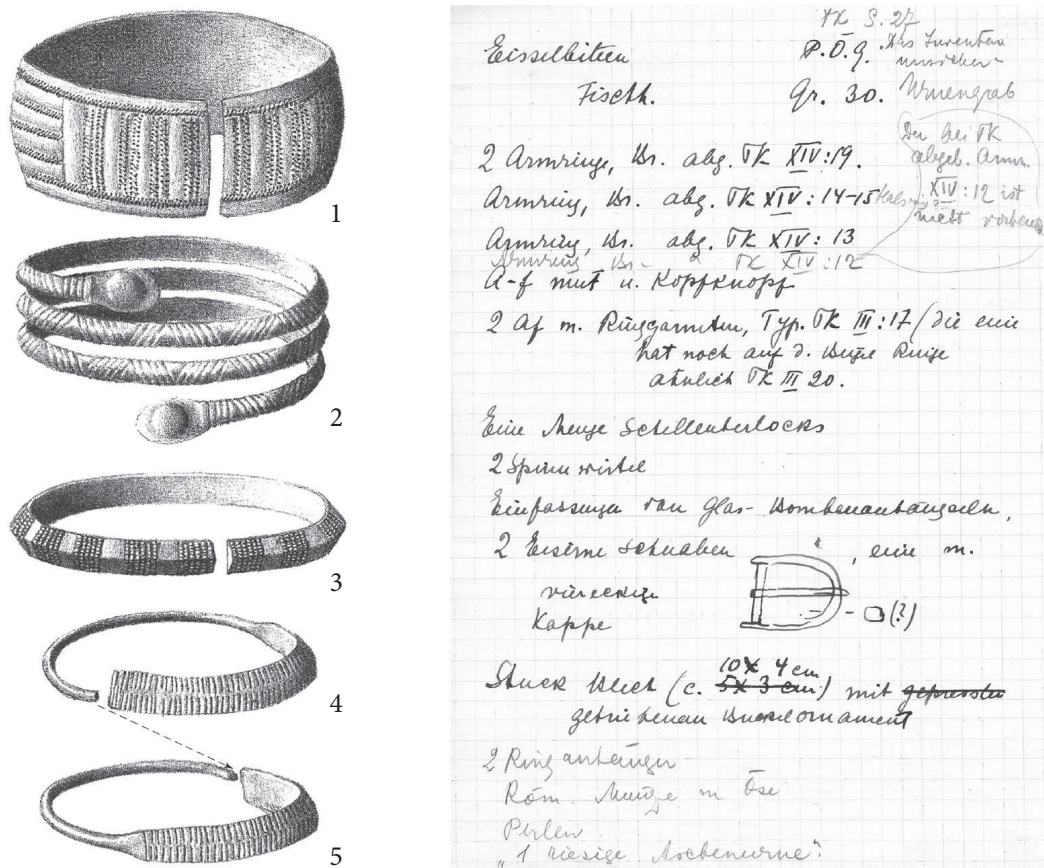 1
2
3
4
5
TK S. 27
Eisselbitten P.Ö.G. Das Inventar
unsicher
Fischh. Gr. 30. Urnengrab
2 Armringe, Br. abg. TK XIV:19.
Armring, Br. abg. TK XIV:14-15
Armring, Br. abg. TK XIV:13
Armring Br. TK XIV:12
Der bei TK
abgeb. Armr.
XIV:12 ist
nicht vorhand
A-f mit u. Kopfknopf
2 Af m. Ringgarnitur, Typ. TK III:17 (die eine
hat noch auf d. Bügel Ringe
ähnlich TK III 20.
Eine Menge Schellenberlocks
2 Spinnwirtel
Einfassungen von Glas- Bombenanhängseln,
2 Eiserne Schnallen , eine m.
viereckige
Kappe
(?)
10x4 cm
Stück Blech (c. 5x3 cm) mit gepressten
getriebenen Buckelornament
2 Ringanhänger
Röm. Münze m Öse
Perlen
"1 riesige Aschenurne".